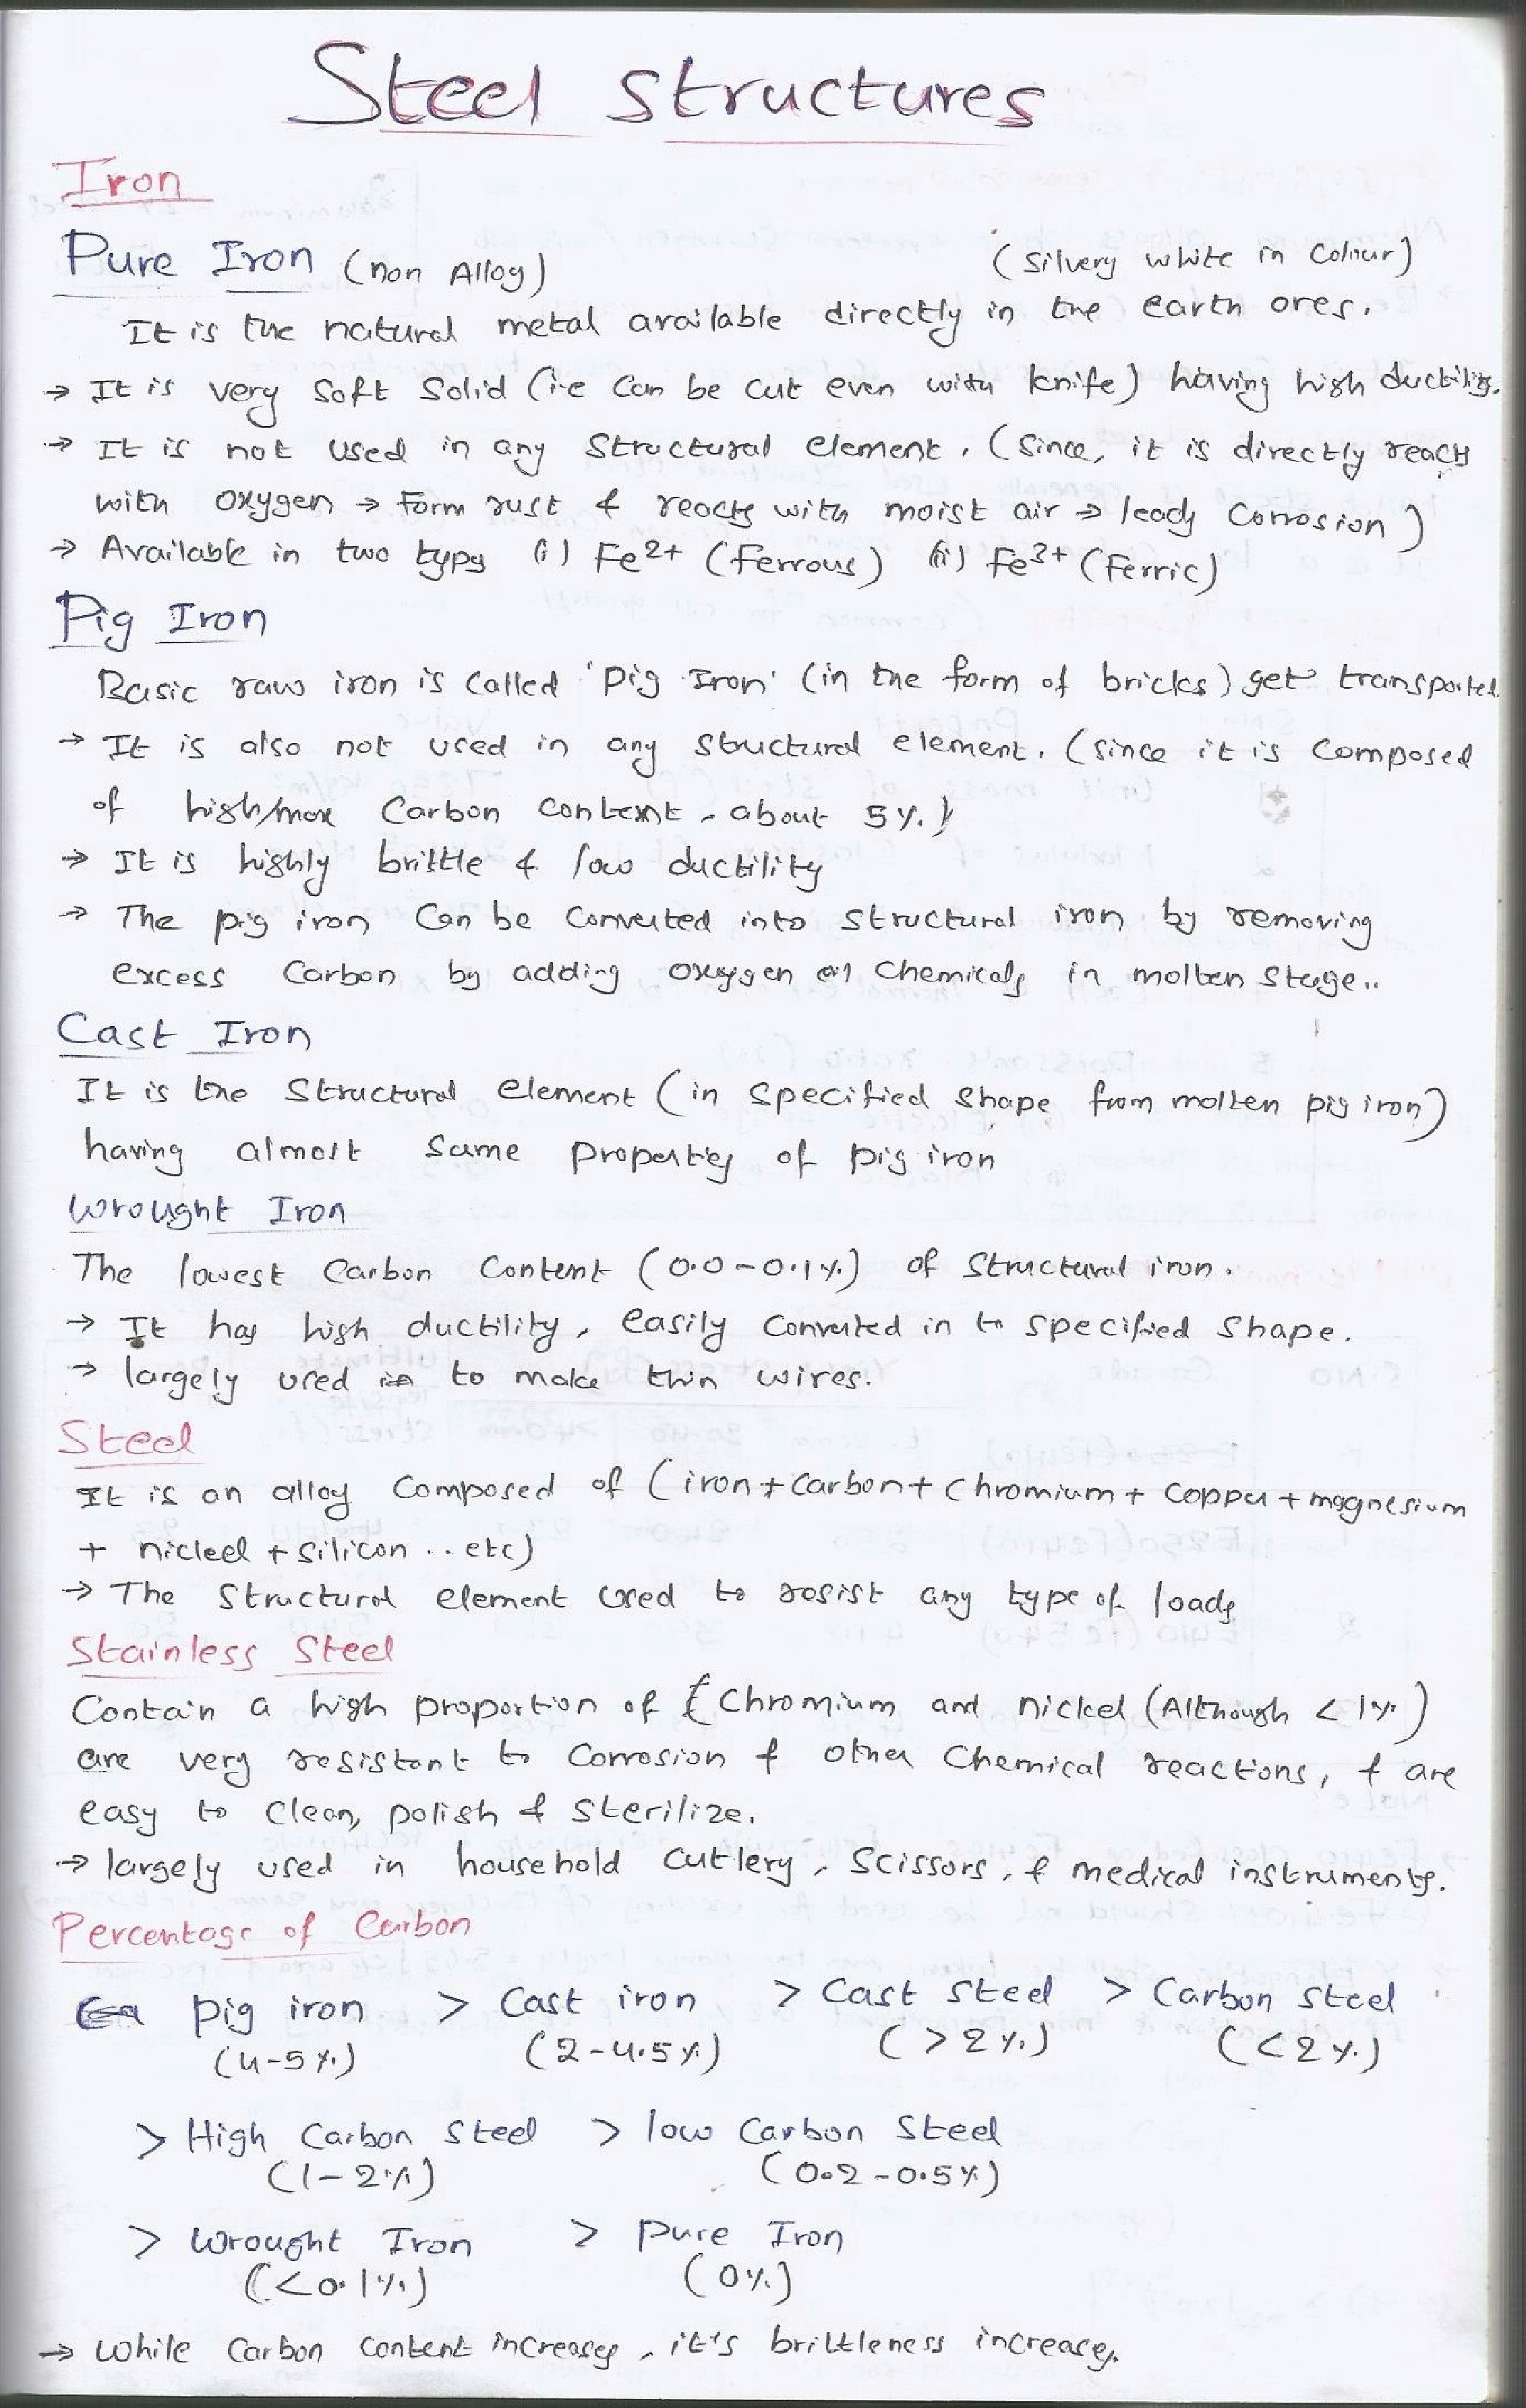 Steel Structures
Iron
Pure Iron (non Alloy) (Silvery white in Colour)
It is the natural metal available directly in the earth ores.
→ It is very Soft Solid (i.e Can be cut even with knife) having high ductility.
→ It is not used in any Structural element. (Since, it is directly reacts
with oxygen → Form rust & reacts with moist air → leads Corrosion)
→ Available in two types (i) Fe2+ (Ferrous) (ii) Fe3+ (Ferric)
Pig Iron
Basic raw iron is called 'Pig Iron' (in the form of bricks) get transported
→ It is also not used in any structural element. (since it is Composed
of high/max Carbon Content, about 5%.)
→ It is highly brittle & low ductility
→ The pig iron Can be Converted into structural iron by removing
excess Carbon by adding oxygen or Chemicals in molten stage..
Cast Iron
It is the Structural element (in specified shape from molten pig iron)
having almost same properties of pig iron
Wrought Iron
The lowest Carbon Content (0.0-0.1%) of Structural iron.
→ It has high ductility, easily Converted in to specified shape.
→ largely used in to make thin wires.
Steel
It is an alloy Composed of (iron+Carbon+Chromium+Copper+magnesium
+ nickel + silicon .. etc)
→ The Structural element used to resist any type of loads
Stainless Steel
Contain a high proportion of { Chromium and nickel (Although <1%)
are very resistant to Corrosion & other Chemical reactions, & are
easy to Clean, polish & Sterilize.
→ largely used in household cutlery, scissors, & medical instruments.
Percentage of Carbon
pig iron > Cast iron > Cast Steel > Carbon Steel
(4-5%) (2-4.5%) (>2%) (<2%)
> High Carbon Steel > low Carbon Steel
(1-2%) (0.2-0.5%)
> Wrought Iron > Pure Iron
(<0.1%) (0%)
→ While Carbon Content increases, it's brittleness increases.